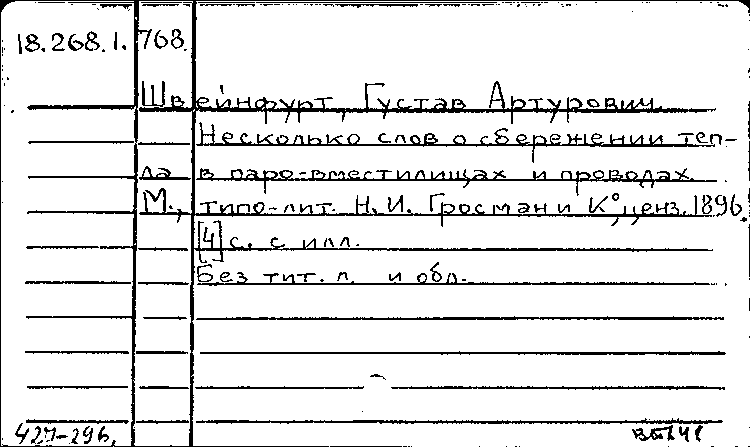 18.268.1.768.
Швейнфурт, Густав Артурович.
Несколько слов о сбережении теп-
ла в паро-вместилищах и проводах.
М., типо-лит. Н. И. Гросман и К°, ценз. 1896.
[4] с. с илл.
Без тит. л. и обл.
427-296.